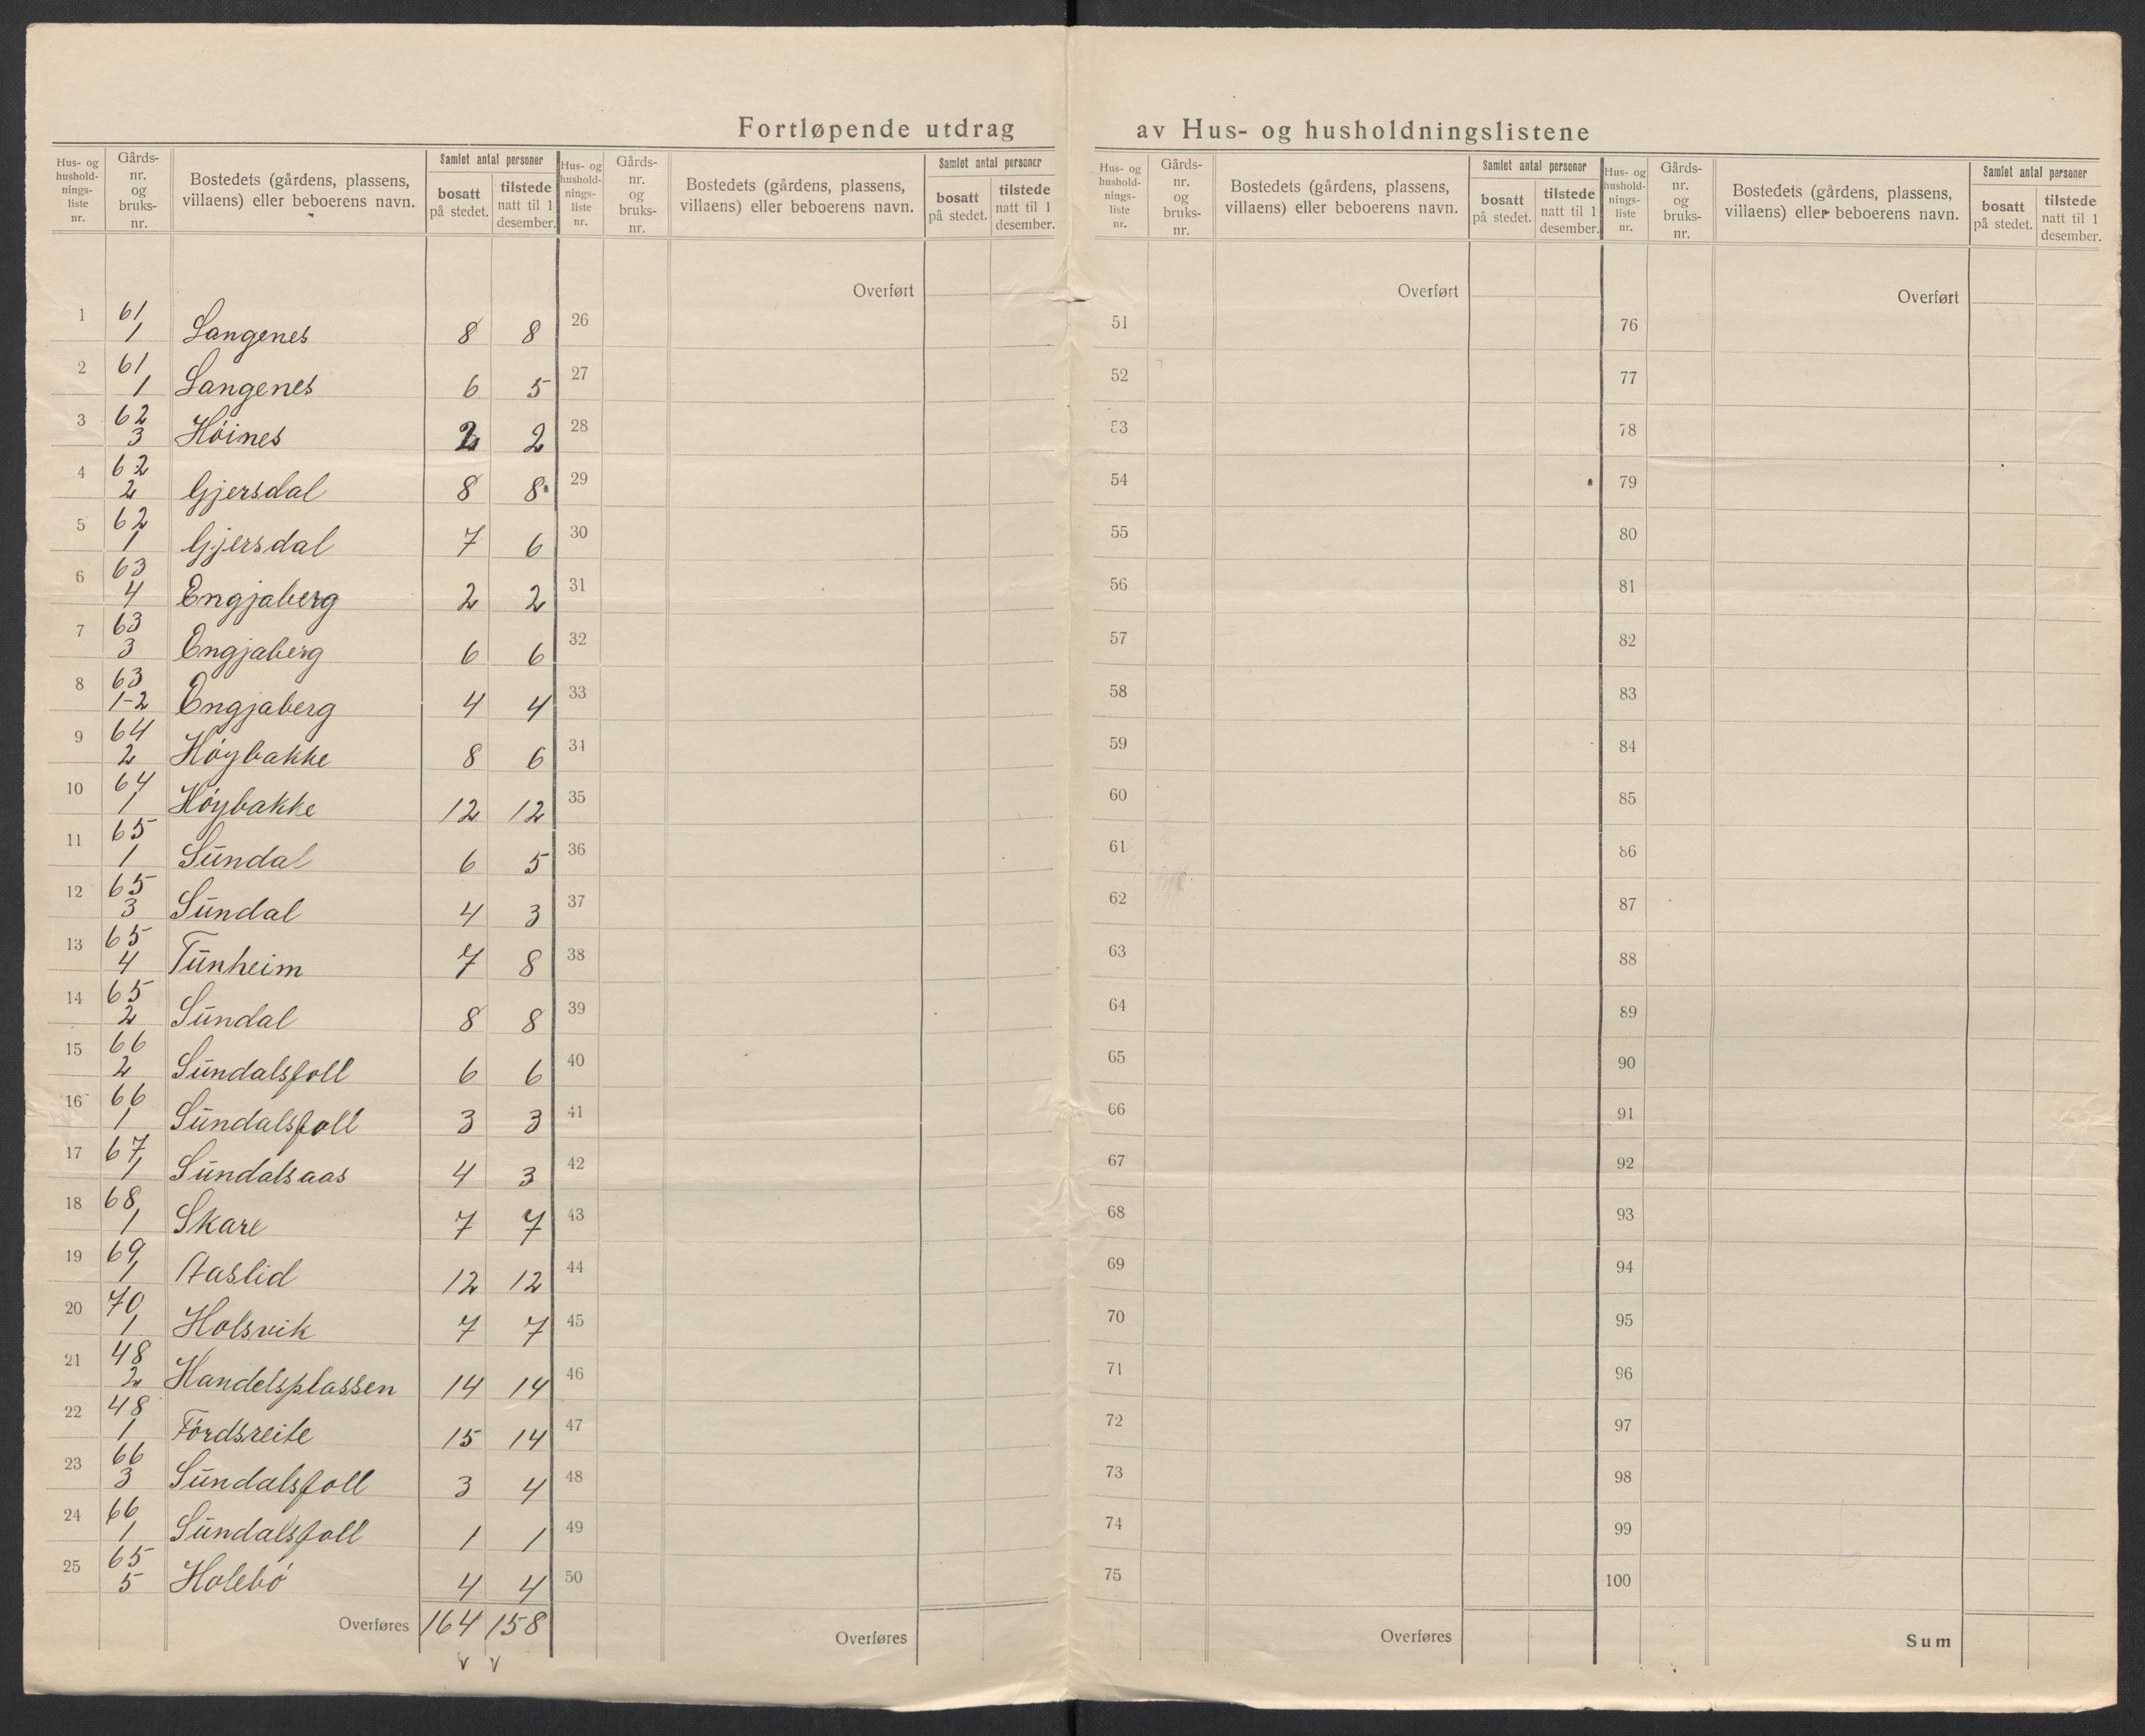 Fortløpende utdrag av Hus- og husholdningslistene
Hus- og hushold- nings- liste nr. | Gårds- nr. og bruks- nr. | Bostedets (gårdens, plassens, villaens) eller beboerens navn. | Samlet antal personer | bosatt på stedet. | tilstede natt til 1 desember.
Hus- og hushold- nings- liste nr. | Gårds- nr. og bruks- nr. | Bostedets (gårdens, plassens, villaens) eller beboerens navn. | Samlet antal personer | bosatt på stedet. | tilstede natt til 1 desember.
Hus- og hushold- nings- liste nr. | Gårds- nr. og bruks- nr. | Bostedets (gårdens, plassens, villaens) eller beboerens navn. | Samlet antal personer | bosatt på stedet. | tilstede natt til 1 desember.
Hus- og hushold- nings- liste nr. | Gårds- nr. og bruks- nr. | Bostedets (gårdens, plassens, villaens) eller beboerens navn. | Samlet antal personer | bosatt på stedet. | tilstede natt til 1 desember.
Overført Overført Overført
1 61/1 Langenes 8 8 26 51 76
2 61/1 Langenes 6 5 27 52 77
3 62/3 Höines 2 2 28 53 78
4 62/2 Gjersdal 8 8 29 54 79
5 62/1 Gjersdal 7 6 30 55 80
6 63/4 Engjaberg 2 2 31 56 81
7 63/3 Engjaberg 6 6 32 57 82
8 63/1-2 Engjaberg 4 4 33 58 83
9 64/2 Höybakke 8 6 34 59 84
10 64/1 Höybakke 12 12 35 60 85
11 65/1 Sundal 6 5 36 61 86
12 65/3 Sundal 4 3 37 62 87
13 65/4 Tunheim 7 8 38 63 88
14 65/2 Sundal 8 8 39 64 89
15 66/2 Sundalsfoll 6 6 40 65 90
16 66/1 Sundalsfoll 3 3 41 66 91
17 67/1 Sundalsaas 4 3 42 67 92
18 68/1 Skare 7 7 43 68 93
19 69/1 Aaslid 12 12 44 69 94
20 70/1 Holsvik 7 7 45 70 95
21 48/2 Handelsplassen 14 14 46 71 96
22 48/1 Fördsreite 15 14 47 72 97
23 66/3 Sundalsfoll 3 4 48 73 98
24 66/1 Sundalsfoll 1 1 49 74 99
25 65/5 Holebö 4 4 50 75 100
Overføres 164 158 Overføres Overføres Sum
v v